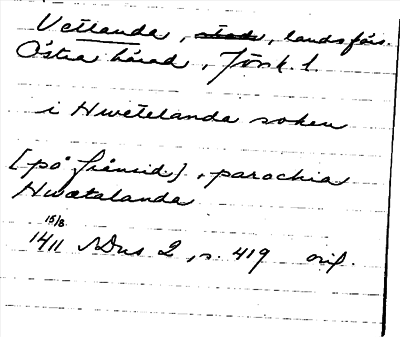 Vetlanda, stad, landsförs.
Östra härad, Jönk. l.
i Hwetelanda soken
[på fiämid], parochia
Hwætalanda
15/8
1411 NDus 2, s. 419 orig.